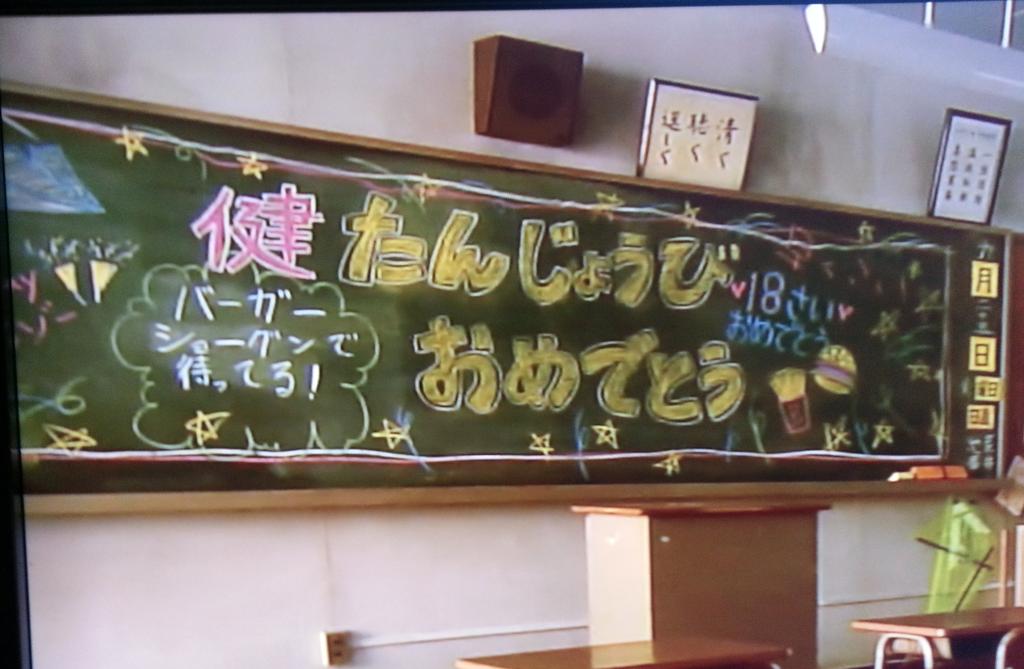 健 たんじょうび
おめでとう
18さい
おめでとう
バーガー
ショーグンで
待ってる!
清く
聴く
選く
月
日
曜日